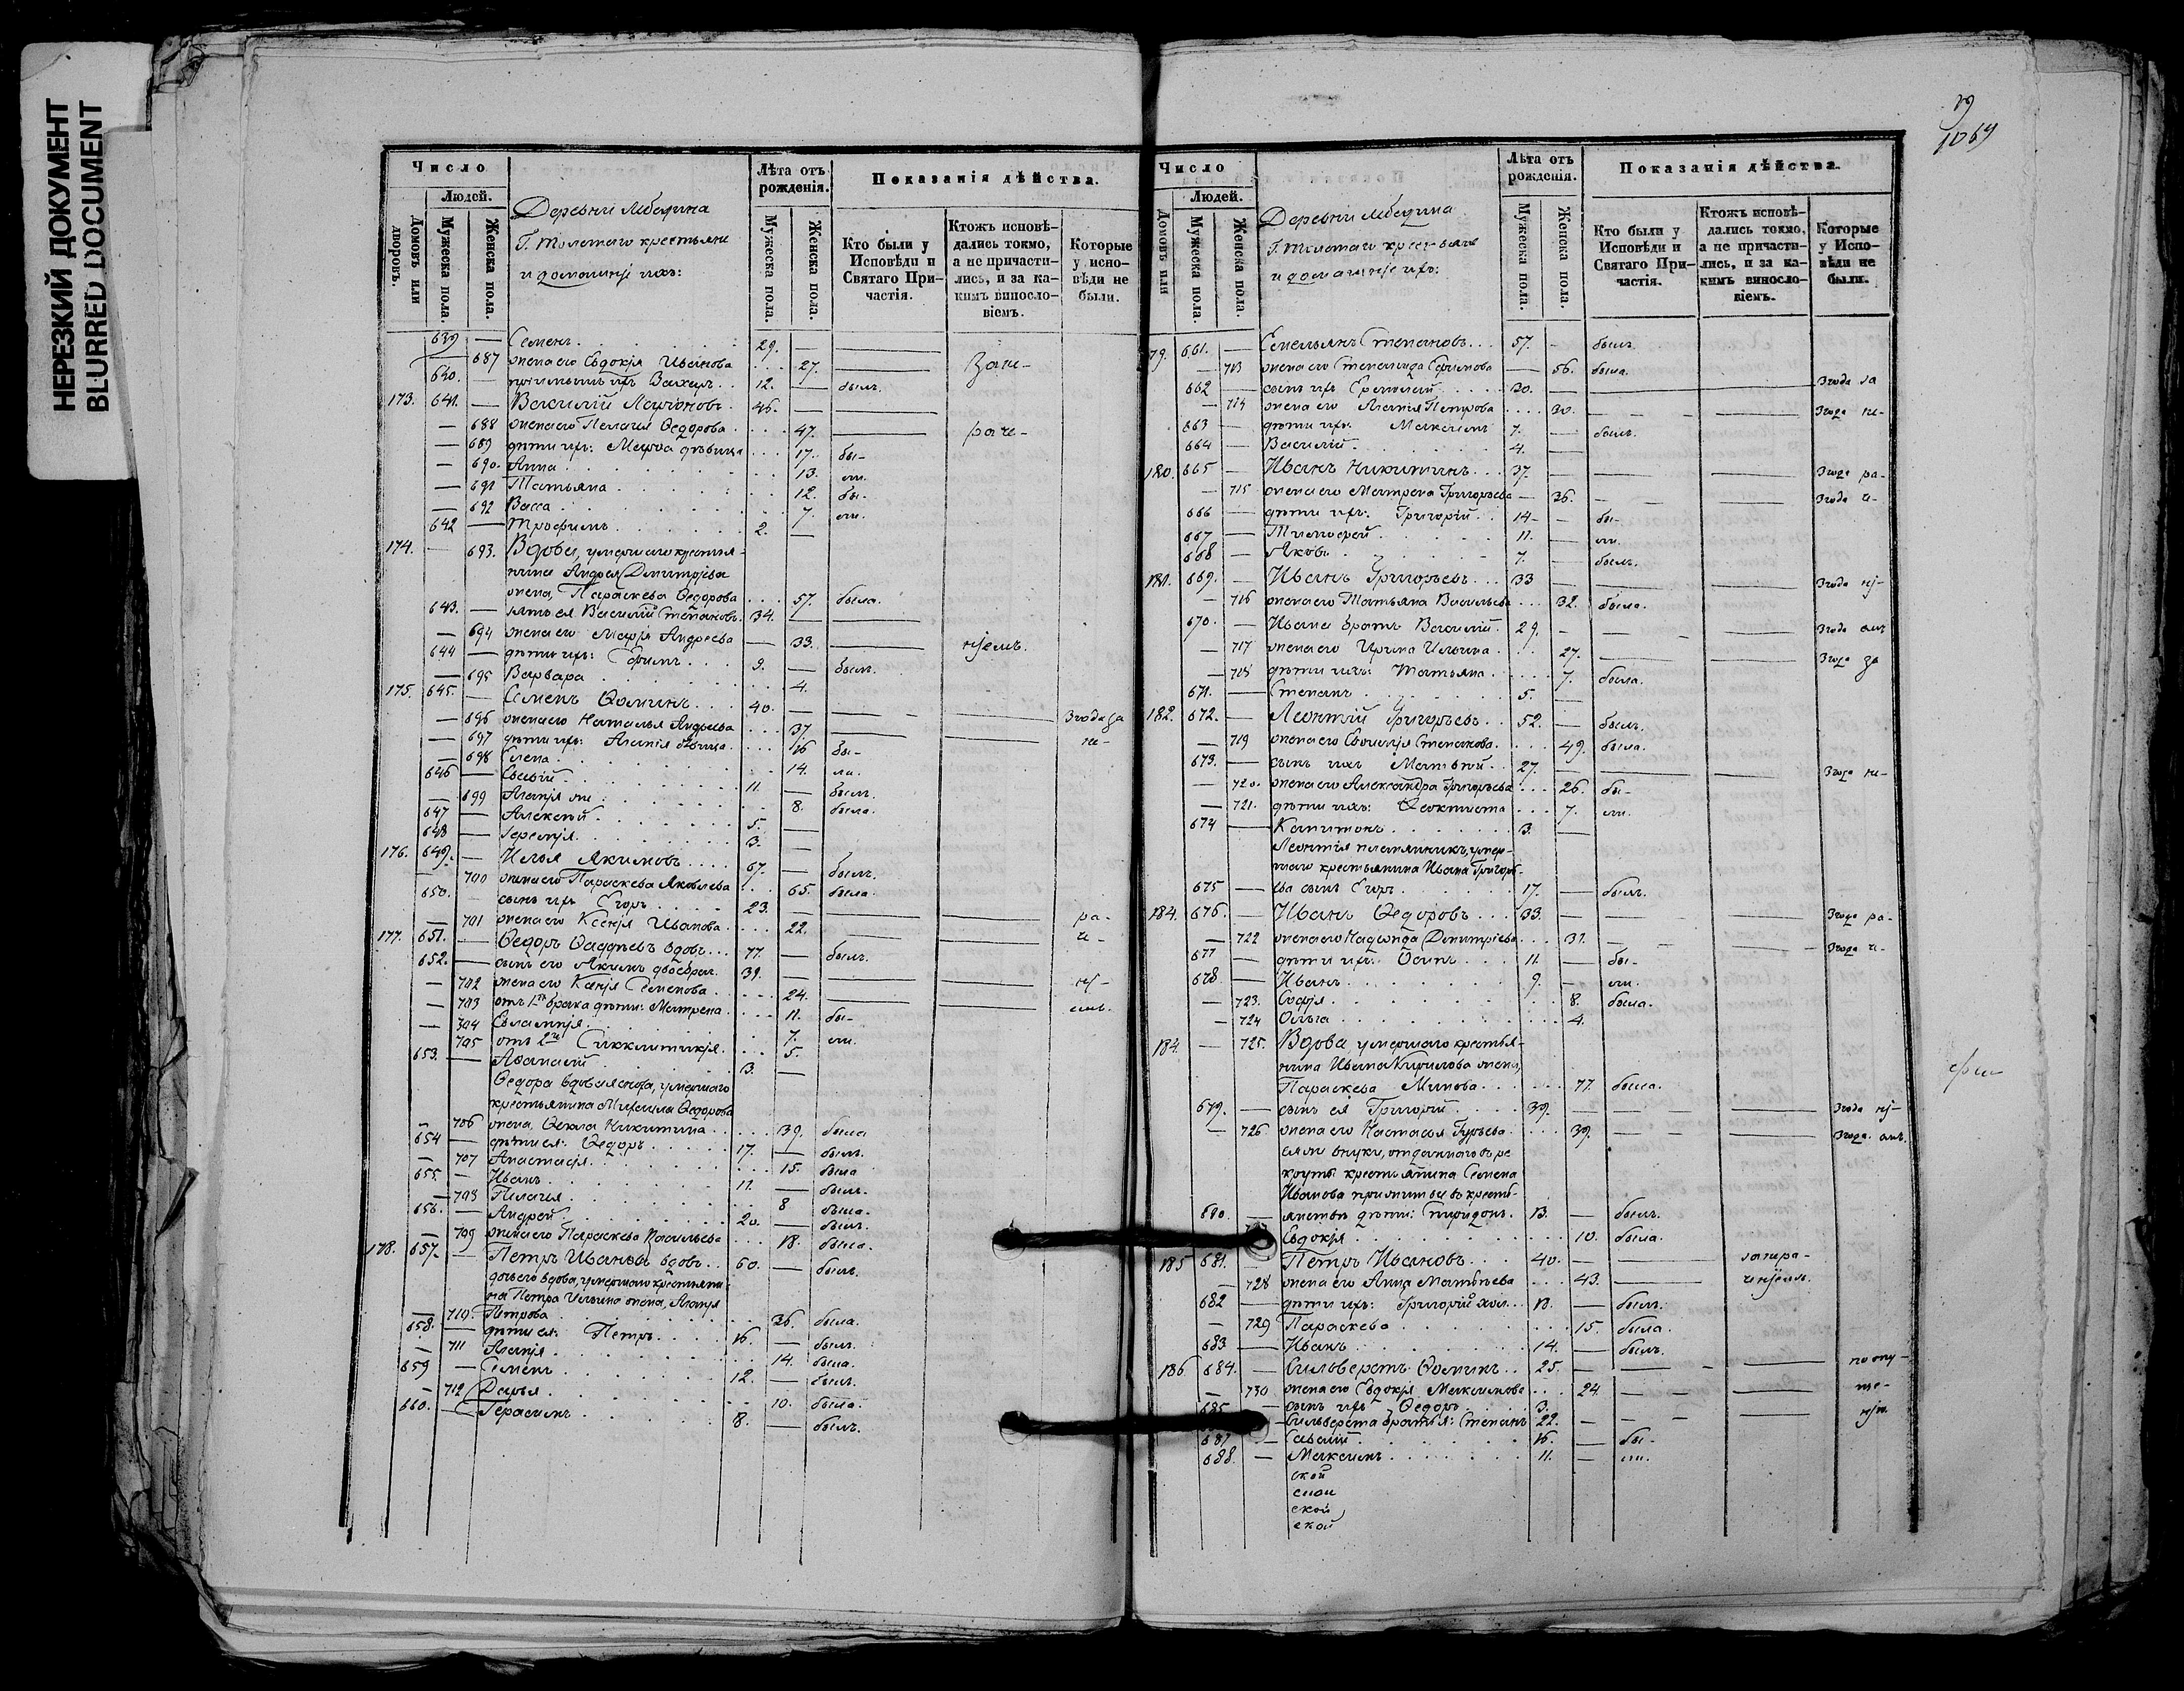 НЕРЕЗКИЙ ДОКУМЕНТ
BLURRED DOCUMENT
1069
Число
Людей.
Домовъ или дворовъ.
Мужеска пола.
Женска пола.
Деревни Лебедина
Г. Толстаго крестьяне
и домашніе ихъ:
Лѣта отъ рожденія.
Мужеска пола.
Женска пола.
Показанія дѣйства.
Кто были у Исповѣди и Святаго Причастія.
Ктожъ исповѣдались токмо, а не причастились, и за какимъ винословіемъ.
Которые у исповѣди не были.
639 — Семенъ 29. —
— 687 жена его Евдокія Иванова 27.
640. — 12. — былъ.
173. 641. — Василій 46. —
— 688 жена его Пелагея Ѳедорова 47.
— 689 дѣти ихъ: Марѳа дѣвица 17. бы-
— 690. Анна 13. ли.
— 691 Татьяна 12. бы-
— 692 Васса 7. ли.
642 — Трофимъ 2. —
174. — 693. Вдова, умершаго крестья-
нина Андрея Димитріева
жена, Параскева Ѳедорова 57. была.
643. — зять ея Василій Степановъ. 34. —
— 694 жена его Марѳа Андреева — 33.
644 — дѣти ихъ: Ефимъ 9. — былъ.
— 695 Варвара 4.
175. 645. — Семенъ Ѳоминъ 40. —
— 696 жена его Наталья Андреева 37.
— 697 дѣти ихъ: Агапія дѣвица 16 бы-
— 698 Елена 14. ли.
646 — Евсѣй 11 — былъ.
— 699 Агапія 8. была.
647 — Алексѣй 5. —
648 — Іеремія 3. —
176. 649. — Илья Якимовъ 67. — былъ.
700 жена его Параскева Яковлева 65. была.
650. — сынъ ихъ Егоръ 23. —
— 701 жена его Ксенія Иванова 22.
177. 651. — Ѳедоръ Ѳаддѣевъ вдовъ 77. — былъ.
652. — сынъ его Якимъ двоебрач. 39. —
— 702 жена его Ксенія Семенова 24.
— 703 отъ 1го брака дѣти: Матрена 11. бы-
— 704 Евлампія 7. ли.
705 отъ 2го Синклитикія 5.
653. — Аѳанасій 3. —
Ѳедора вдовая сноха, умершаго
крестьянина Михаила Ѳедорова
— 706 жена, Ѳекла Никитина 39. была
654 — дѣти ея: Ѳедоръ 17. — былъ.
— 707 Анастасія 15. была
655. — Иванъ 11. — былъ.
— 708 Пелагея 8 была.
656. — Андрей 20. — былъ.
— 709 жена его Параскева Васильева 18. была.
178. 657. — Петръ Ивановъ вдовъ 60. — былъ.
дочь его вдова, умершаго крестьяни-
на Петра Ильина жена, Агапія
— 710. Петрова 36. была.
658. — дѣти ея: Петръ 16. — былъ.
— 711 Агапія 14. была.
659 — Семенъ 12. — былъ.
— 712 Дарья 10. была.
660. — Герасимъ 8. — былъ.
Число
Людей.
Домовъ или
Мужеска пола.
Женска пола.
Деревни Лебедина
Г. Толстаго крестьяне
и домашніе ихъ:
Лѣта отъ рожденія.
Мужеска пола.
Женска пола.
Показанія дѣйства.
Кто были у Исповѣди и Святаго Причастія.
Ктожъ исповѣдались токмо, а не причастились, и за какимъ винословіемъ.
Которые у Исповѣди не были.
79. 661. — Емельянъ Степановъ 57. — былъ.
— 713 жена его Степанида Ефимова — 56. была.
662 — сынъ ихъ 30. — 3 года за
— 714 жена его Агапія Петрова 30. 3 года не-
663 — дѣти ихъ: Максимъ 7. — былъ.
664 — Василій 4. —
180. 665 — Иванъ Никитинъ 37. — 3 года ра-
— 715 жена его Матрена Григорьева — 36. 3 года че-
666 — дѣти ихъ: Григорій 14 — бы-
667 — Тимоѳей 11. — ли.
668 — Яковъ 7. — былъ.
181. 669. — Иванъ Григорьевъ 33 — 3 года ні-
— 716 жена его Татьяна Васильева 32. была.
670. — Ивана братъ Василій 29. — 3 года емъ
— 717 жена его Ирина Ильина 27. 3 года за
— 718 дѣти ихъ: Татьяна 7. была.
671. — Степанъ 5. —
182. 672. — Леонтій Григорьевъ 52. — былъ.
— 719 жена его Степанова 49. была.
673. — сынъ ихъ Матвѣй 27. — 3 года не-
— 720. жена его Александра Григорьева 26. бы-
— 721. дѣти ихъ: Ѳеоктиста 7. ли.
674 — Капитонъ 3. —
Леонтія племянникъ, умер-
шаго крестьянина Ивана Григорь-
675 — ева сынъ Егоръ 17. — былъ.
184. 676. — Иванъ Ѳедоровъ 33. — 3 года ра-
— 722 жена его Надежда Димитріева 31. 3 года че-
677 — дѣти ихъ: Осипъ 11 — бы-
678 — Иванъ 9. — ли.
— 723. Софія 8. была.
— 724 Ольга 4.
184. — 725. Вдова умершаго крестья-
нина Ивана Кирилова жена,
Параскева Минова 77. была.
679. — сынъ ея Григорій 39. — 3 года ні-
— 726 жена его Настасья Гурьева 39. 3 года емъ.
ея внуки, отданнаго въ ре
круты крестьянина Семена
Иванова прижитые въ крестъ-
680. — янствѣ дѣти: Спиридонъ 13. — былъ.
Евдокія 10. была.
185 681. — Петръ Ивановъ 40. — за нера-
— 728 жена его Анна Матвѣева 43. ченіемъ.
682 — дѣти ихъ: Григорій хол. 18. — былъ.
— 729 Параскева 15. была.
683 — Иванъ 14. — былъ.
186 684. — Сильверстъ Ѳоминъ 25. — по опу-
— 730 жена его Евдокія Максимова 24. ще-
685 — сынъ ихъ Ѳедоръ 3. нію
— Сильверста братья: Степанъ 22. —
687 — Савелій 16. — бы-
688. — Максимъ 11. — ли.
ской
ской
ской